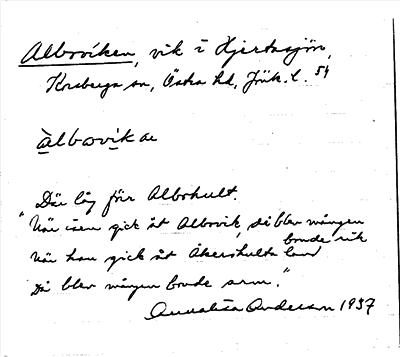 Albroviken, vik i Hjertasjön,
Korsberga sn, Östra hd, Jönk. l. 54
àlbovik ae
Där låg förr Albohult.
"När isen gick åt Albovik, så blev mången bonde rik
när han gick åt Åkershults land
då blev mången bonde arm."
Annalisa Anderson 1937